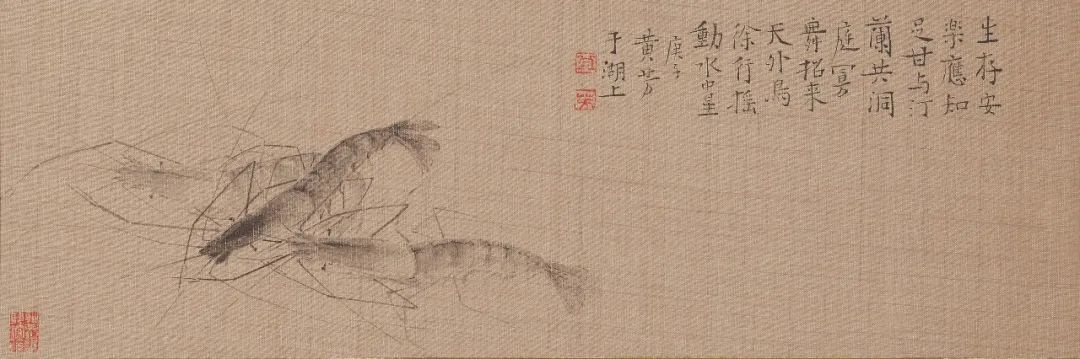 生存安
楽應知
足甘与汀
蘭共洞
庭冥
舞招来
天外鳥
徐行摇
動水中星
庚子
黄芳
于湖上